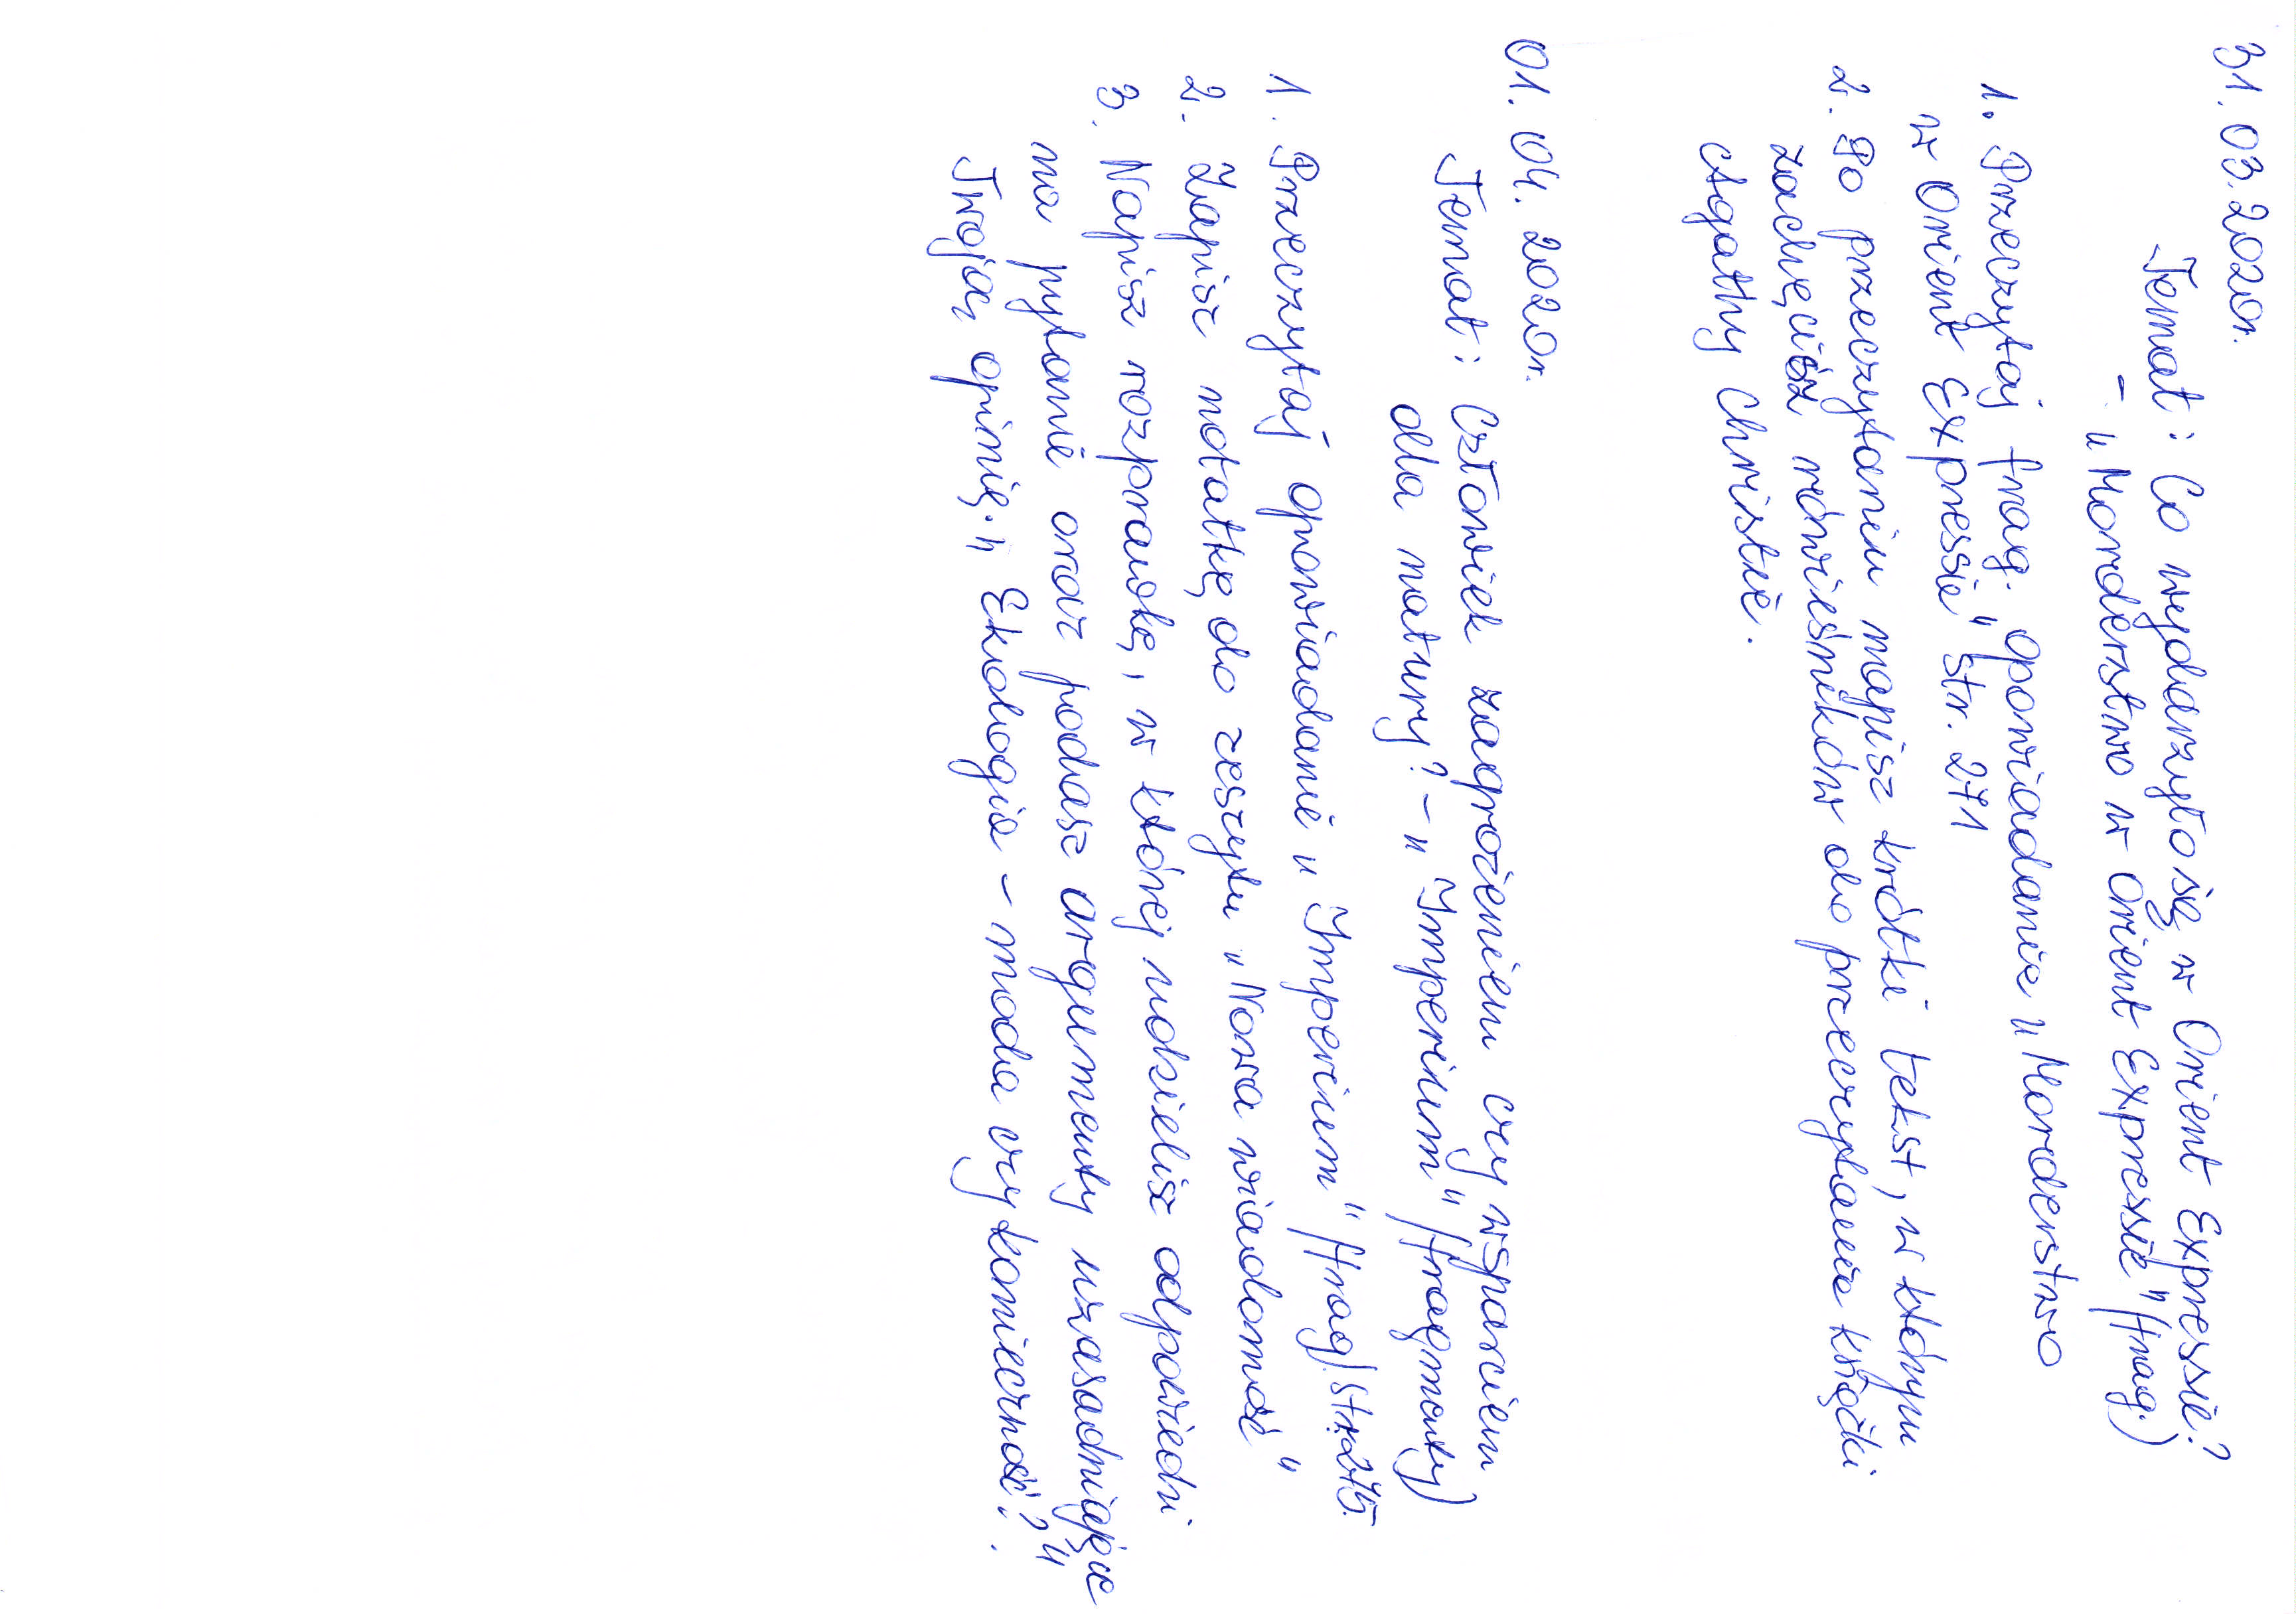 31.03.2020r.
Temat: Co wydarzyło się w Orient Expressie?
- "Morderstwo w Orient Expressie" (frag.)
1. Przeczytaj frag. opowiadania "Morderstwo
w Orient Expressie" str. 271
2. Po przeczytaniu napisz krótki tekst, w którym
zachęcisz rówieśników do przeczytania książki
Agathy Christie.
01.04.2020r.
Temat: Człowiek zagrożeniem czy wsparciem
dla natury? - "Imperium" (fragmenty)
1. Przeczytaj opowiadanie "Imperium" (frag) str. 275.
2. Zapisz notatkę do zeszytu "Nowa wiadomość"
3. Napisz rozprawkę, w której udzielisz odpowiedzi
na pytanie oraz podasz argumenty uzasadniające
Twoją opinię. "Ekologia - moda czy konieczność?".